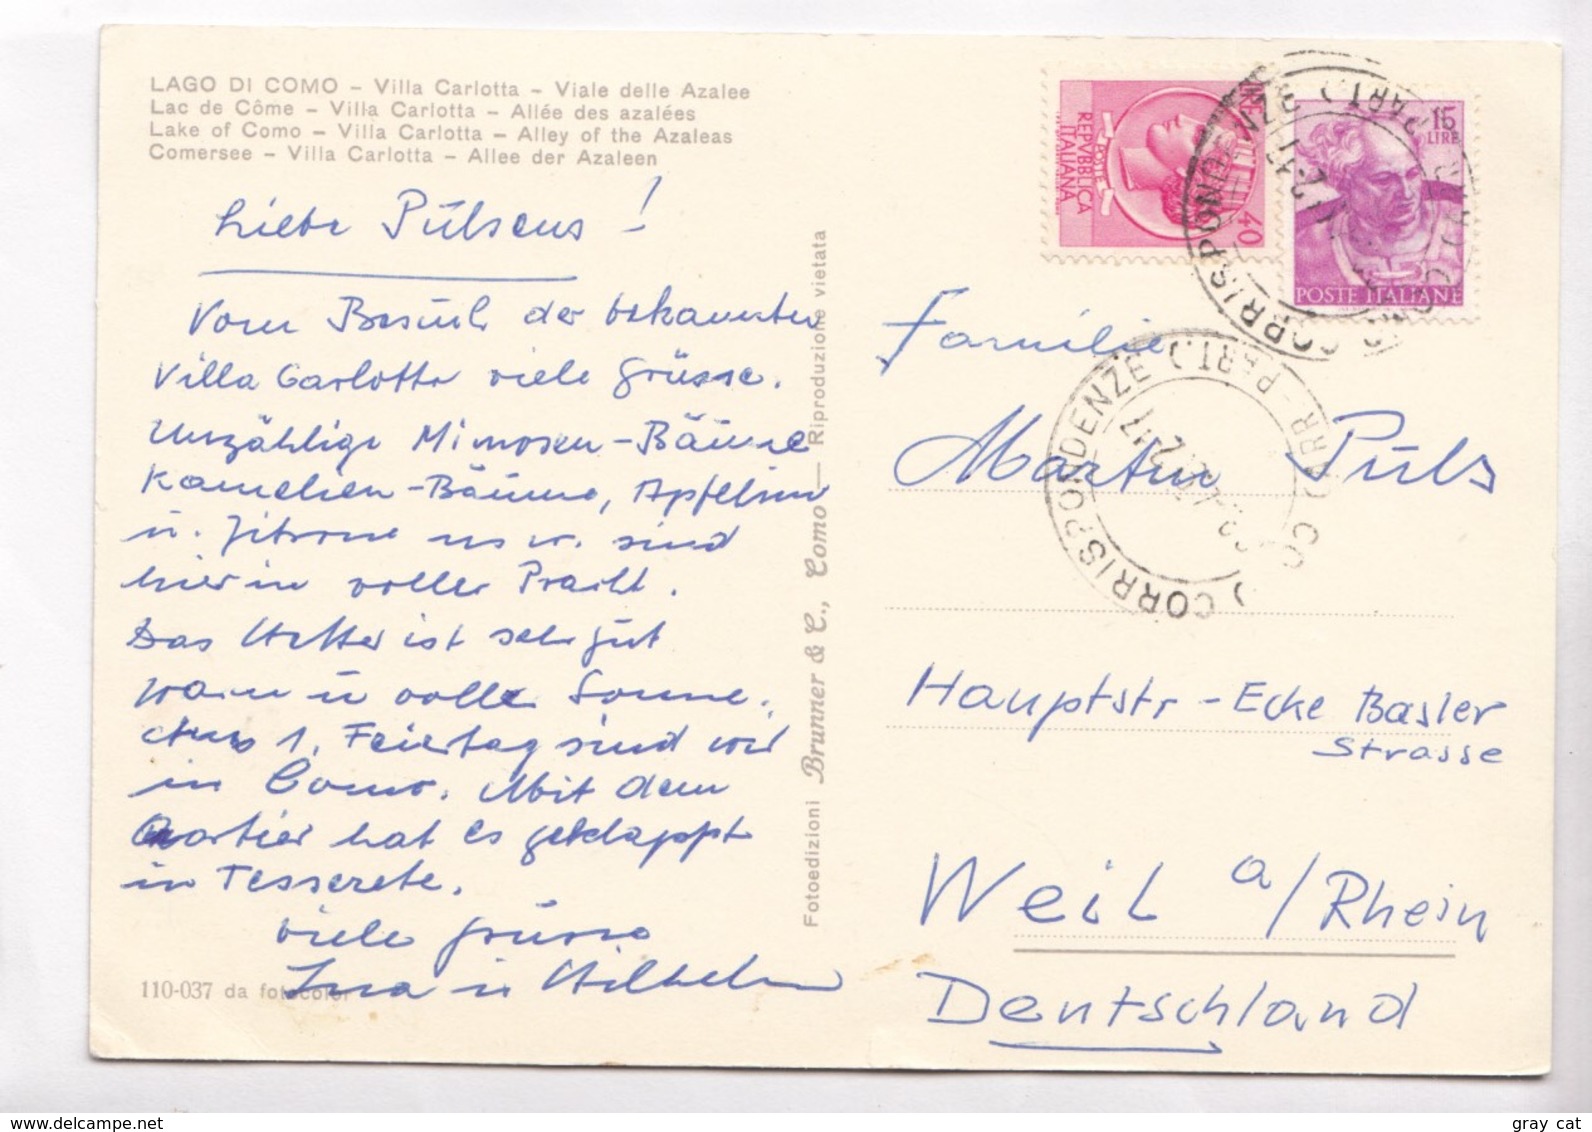 LAGO DI COMO – Villa Carlotta – Viale delle Azalee
Lac de Côme – Villa Carlotta – Allée des azalées
Lake of Como – Villa Carlotta – Alley of the Azaleas
Comersee – Villa Carlotta – Allee der Azaleen
Liebe Pülsens!
Vom Besuch der bekannten
Villa Carlotta viele Grüsse.
Unzählige Mimosen-Bäume
Kamelien-Bäume, Apfelsinen
u. Zitrone usw. sind
hier in voller Pracht.
Das Wetter ist sehr gut
warm u voller Sonne.
1. Feiertag sind wir
in Como. Mit dem
Quartier hat es geklappt
in Tesserete.
viele Grüsse
u Wilhelm
110-037 da fotocolor
Fotoedizioni Brunner & C., Como — Riproduzione vietata
REPVBBLICA
ITALIANA
POSTE
LIRE
40
15
LIRE
POSTE ITALIANE
CORRISPONDENZE
PART.)
CORRISPONDENZE
PART.)
Familie
Martin Puls
Hauptstr - Ecke Basler
Strasse
Weil a/Rhein
Deutschland
www.delcampe.net
gray cat